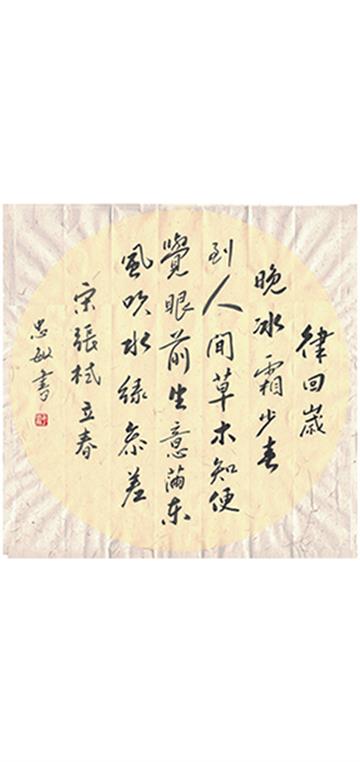 律回歲
晚冰霜少春
到人間草木知便
覺眼前生意滿东
風吹水绿參差
宋張栻立春
忠敏書